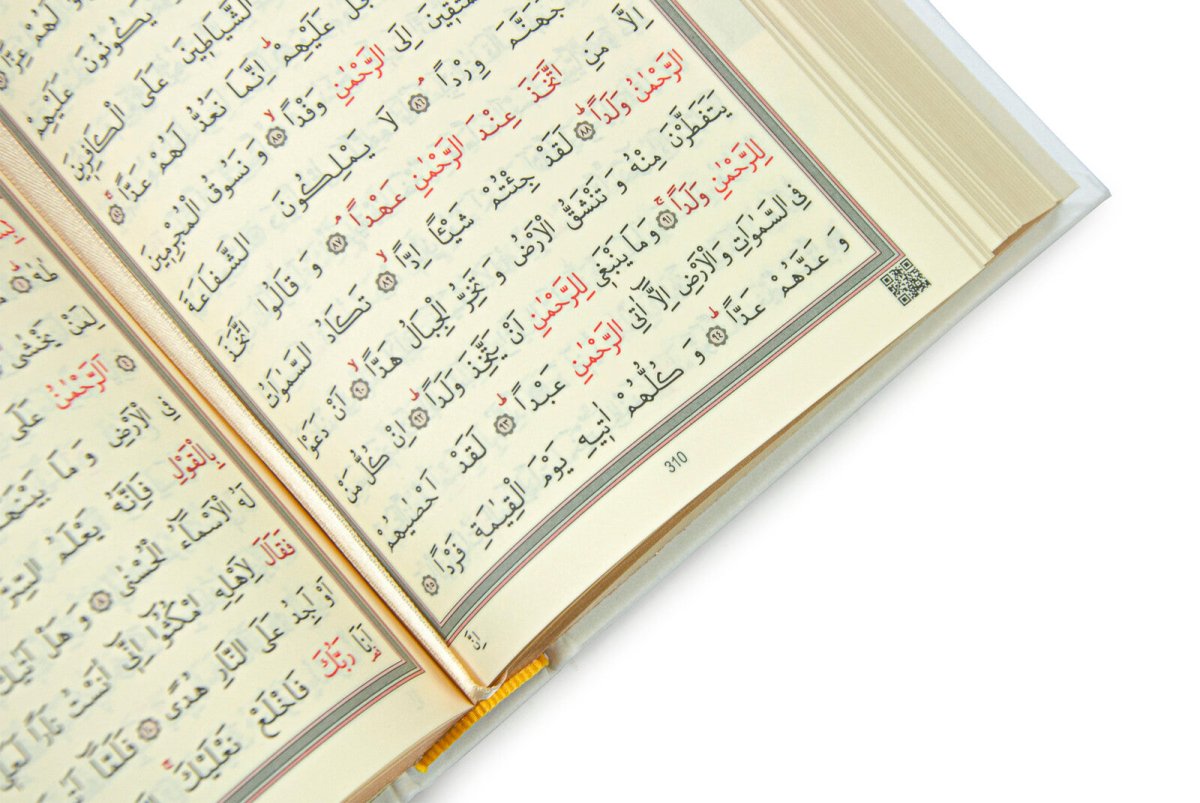 لَهُمْ عِزًّا
يَكُونُونَ عَلَيْهِمْ
الشَّيَاطِينَ عَلَى الْكَافِرِينَ
عَلَيْهِمْ اِنَّمَا نَعُدُّ لَهُمْ عَدًّا ٨٤
اِلَى الرَّحْمٰنِ وَفْدًا ٨٥ وَ نَسُوقُ الْمُجْرِمِينَ
جَهَنَّمَ وِرْدًا ٨٦ لَا يَمْلِكُونَ الشَّفَاعَةَ
اِلَّا مَنِ اتَّخَذَ عِنْدَ الرَّحْمٰنِ عَهْدًا ٨٧ وَ قَالُوا اتَّخَذَ
الرَّحْمٰنُ وَلَدًا ٨٨ لَقَدْ جِئْتُمْ شَيْـًٔا اِدًّا ٨٩ تَكَادُ السَّمٰوَاتُ
يَتَفَطَّرْنَ مِنْهُ وَ تَنْشَقُّ الْاَرْضُ وَ تَخِرُّ الْجِبَالُ هَدًّا ٩٠ اَنْ دَعَوْا
لِلرَّحْمٰنِ وَلَدًا ٩١ وَمَا يَنْبَغِي لِلرَّحْمٰنِ اَنْ يَتَّخِذَ وَلَدًا ٩٢ اِنْ كُلُّ مَنْ
فِي السَّمٰوَاتِ وَالْاَرْضِ اِلَّٓا اٰتِي الرَّحْمٰنِ عَبْدًا ٩٣ لَقَدْ اَحْصٰيهُمْ
وَ عَدَّهُمْ عَدًّا ٩٤ وَ كُلُّهُمْ اٰتِيهِ يَوْمَ الْقِيٰمَةِ فَرْدًا ٩٥
310
اِنَّ
طٰهٰ ١
لِمَنْ يَخْشٰى
٤ اَلرَّحْمٰنُ عَلَى
فِي الْاَرْضِ وَ مَا بَيْنَهُمَا
بِالْقَوْلِ فَاِنَّهُ يَعْلَمُ السِّرَّ
لَهُ الْاَسْمَٓاءُ الْحُسْنٰى ٨ وَ هَلْ اَتٰيكَ
فَقَالَ لِاَهْلِهِ امْكُثُٓوا اِنِّٓي اٰنَسْتُ نَارًا
اَوْ اَجِدُ عَلَى النَّارِ هُدًى ١٠ فَلَمَّٓا
اَنَا۬ رَبُّكَ فَاخْلَعْ نَعْلَيْكَ